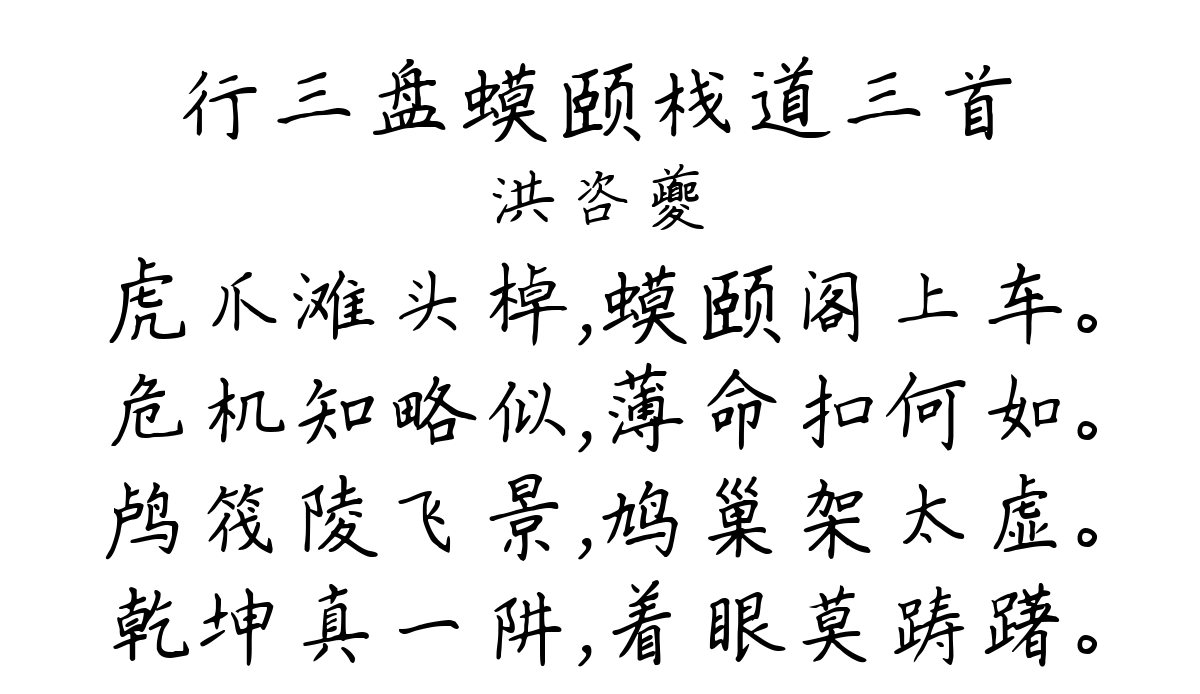 行三盘蟆颐栈道三首
洪咨夔
虎爪滩头棹,蟆颐阁上车。
危机知略似,薄命扣何如。
鸬筏陵飞景,鸠巢架太虚。
乾坤真一阱,着眼莫踌躇。